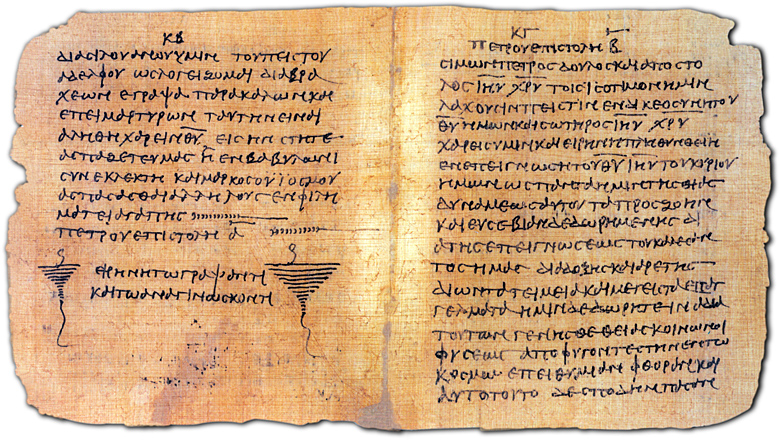 ΚΒ
ΔΙΑϹΙΛΟΥΑΝΟΥΥΜΙΝ ΤΟΥΠΕΙϹΤΟΥ
ΑΔΕΛΦΟΥ ΩϹΛΟΓΕΙΖΟΜΑΙ ΔΙΑΒΡΑ
ΧΕΩΝ ΕΓΡΑΨΑ ΠΑΡΑΚΑΛΩΝΚΑΙ
ΕΠΕΙΜΑΡΤΥΡΩΝ ΤΑΥΤΗΝΕΙΝΑΙ
ΑΛΗΘΗΧΑΡΕΙΝΘ̅Υ̅ ΕΙϹΗΝϹΤΗΤΕ
ΑϹΠΑΖΕΤΕΥΜΑϹ Η ΕΝΒΑΒΥΛΩΝΙ
ϹΥΝΕΚΛΕΚΤΗ ΚΑΙΜΑΡΚΟϹΟΥΙΟϹΜΟΥ
ΑϹΠΑϹΑϹΘΑΙΑΛΛΗΛΟΥϹ ΕΝΦΙΛΗ
ΜΑΤΕΙΑΓΑΠΗϹ
ΠΕΤΡΟΥΕΠΙϹΤΟΛΗ Α̅
ΕΙΡΗΝΗΤΩΓΡΑΨΑΝΤΙ
ΚΑΙΤΩΑΝΑΓΙΝΩϹΚΟΝΤΙ
ΚΓ
ΠΕΤΡΟΥΕΠΙϹΤΟΛΗ Β̅
ϹΙΜΩΝΠΕΤΡΟϹ ΔΟΥΛΟϹΚΑΙΑΠΟϹΤΟ
ΛΟϹ Ι̅Η̅Υ̅ Χ̅Ρ̅Υ̅ ΤΟΙϹΙϹΟΤΙΜΟΝΗΜΙΝ
ΛΑΧΟΥϹΙΝΠΕΙϹΤΙΝ ΕΝΔΙΚΕΟϹΥΝΗΤΟΥ
Θ̅Υ̅ ΗΜΩΝΚΑΙϹΩΤΗΡΟϹ Ι̅Η̅Υ̅ Χ̅Ρ̅Υ̅
ΧΑΡΕΙϹΥΜΙΝΚΑΙΕΙΡΗΝΗΠΛΗΘΥΝΘΕΙΗ
ΕΝΕΠΕΙΓΝΩϹΗΤΟΥΘ̅Υ̅ Ι̅Η̅Υ̅ ΤΟΥΚΥΡΙΟΥ
ΗΜΩΝ ΩϹΠΑΝΤΑΗΜΙΝΤΗϹΘΙΑϹ
ΔΥΝΑΜΕΩϹΑΥΤΟΥ ΤΑΠΡΟϹΖΩΗΝ
ΚΑΙΕΥϹΕΒΙΑΝΔΕΔΩΡΗΜΕΝΗϹ ΔΙ
ΑΤΗϹΕΠΕΙΓΝΩϹΕΩϹΤΟΥΚΑΛΕϹΑΝ
ΤΟϹΗΜΑϹ ΔΙΑΔΟΞΗϹΚΑΙΑΡΕΤΗϹ
ΔΙΩΝΤΑΤΕΙΜΕΙΑΚΑΙΜΕΓΙϹΤΑΕΠΑΓ
ΓΕΛΜΑΤΑΗΜΙΝΔΕΔΩΡΗΤΕΙΝΑΔΙΑ
ΤΟΥΤΩΝ ΓΕΝΗϹΘΕΘΕΙΑϹΚΟΙΝΩΝΟΙ
ΦΥϹΕΩϹ ΑΠΟΦΥΓΟΝΤΕϹΤΗΝΕΝΤΩ
ΚΟϹΜΩ ΕΠΕΙΘΥΜΙΑΝ ΦΘΟΡΑΝΚΑΙ
ΑΥΤΟΤΟΥΤΟ ΔΕϹΠΟΔΗΝΠΑϹΑΝ